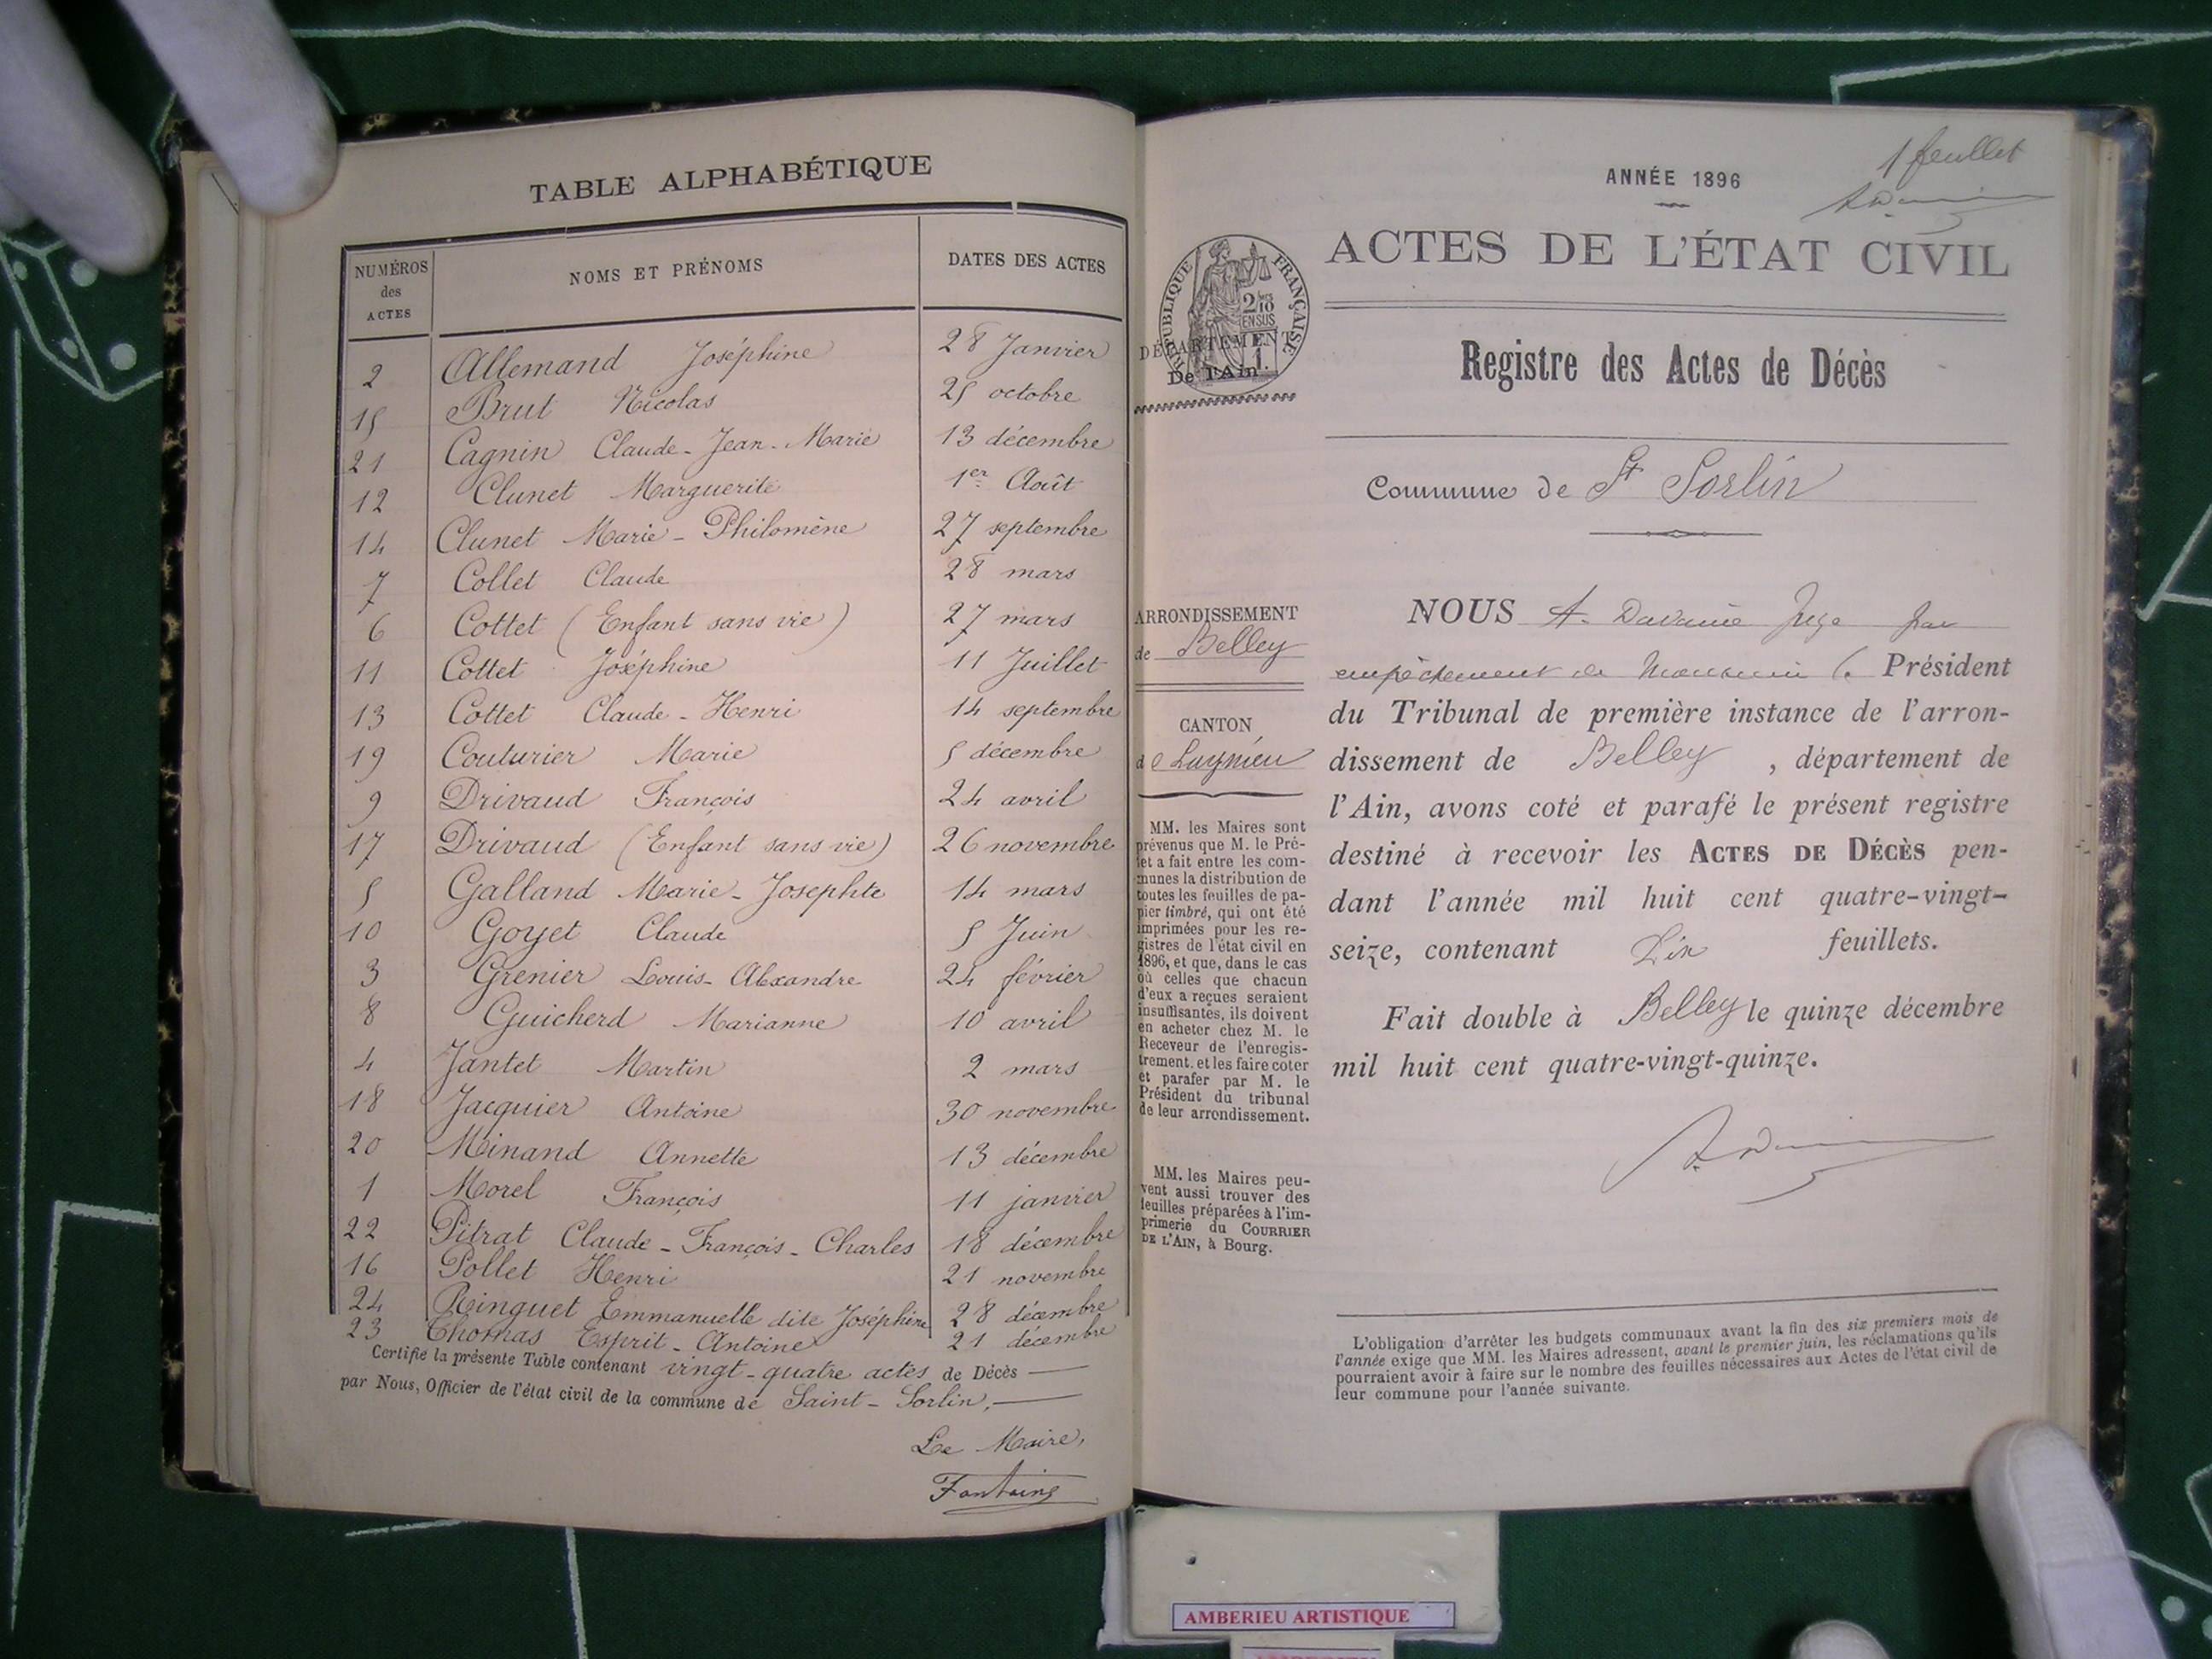 TABLE ALPHABÉTIQUE
NUMÉROS des ACTES NOMS ET PRÉNOMS DATES DES ACTES
2 Allemand Joséphine 28 Janvier
15 Brut Nicolas 25 octobre
21 Cagnin Claude-Jean-Marie 13 décembre
12 Clunet Marguerite 1er Août
14 Clunet Marie-Philomène 27 septembre
7 Collet Claude 28 mars
6 Cottet (Enfant sans vie) 27 mars
11 Cottet Joséphine 11 Juillet
13 Cottet Claude-Henri 14 septembre
19 Couturier Marie 5 décembre
9 Drivaud François 24 avril
17 Drivaud (Enfant sans vie) 26 novembre
5 Galland Marie-Josephte 14 mars
10 Goyet Claude 5 Juin
3 Grenier Louis-Alexandre 24 février
8 Guicherd Marianne 10 avril
4 Jantet Martin 2 mars
18 Jacquier Antoine 30 novembre
20 Minand Annette 13 décembre
1 Morel François 11 janvier
22 Pitrat Claude-François-Charles 18 décembre
16 Pollet Henri 21 novembre
24 Ringuet Emmanuelle dite Joséphine 28 décembre
23 Thomas Esprit-Antoine 21 décembre
Certifié la présente Table contenant vingt-quatre actes de Décès
par Nous, Officier de l'état civil de la commune de Saint-Sorlin,
Le Maire,
Fontaine
1 feuillet
ANNÉE 1896
ACTES DE L'ÉTAT CIVIL
RÉPUBLIQUE FRANÇAISE
2/10 EN SUS
DÉPARTEMENT
De l'Ain.
Registre des Actes de Décès
Commune de St Sorlin
ARRONDISSEMENT
de Belley
CANTON
de Lagnieu
MM. les Maires sont
prévenus que M. le Pré-
fet a fait entre les com-
munes la distribution de
toutes les feuilles de pa-
pier timbré, qui ont été
imprimées pour les re-
gistres de l'état civil en
1896, et que, dans le cas
où celles que chacun
d'eux a reçues seraient
insuffisantes, ils doivent
en acheter chez M. le
Receveur de l'enregis-
trement, et les faire coter
et parafer par M. le
Président du tribunal
de leur arrondissement.
MM. les Maires peu-
vent aussi trouver des
feuilles préparées à l'im-
primerie du COURRIER
DE L'AIN, à Bourg.
NOUS A. Juge par
empêchement de Monsieur le Président
du Tribunal de première instance de l'arron-
dissement de Belley, département de
l'Ain, avons coté et parafé le présent registre
destiné à recevoir les ACTES DE DÉCÈS pen-
dant l'année mil huit cent quatre-vingt-
seize, contenant feuillets.
Fait double à Belley le quinze décembre
mil huit cent quatre-vingt-quinze.
L'obligation d'arrêter les budgets communaux avant la fin des six premiers mois de
l'année exige que MM. les Maires adressent, avant le premier juin, les réclamations qu'ils
pourraient avoir à faire sur le nombre des feuilles nécessaires aux Actes de l'état civil de
leur commune pour l'année suivante.
AMBERIEU ARTISTIQUE